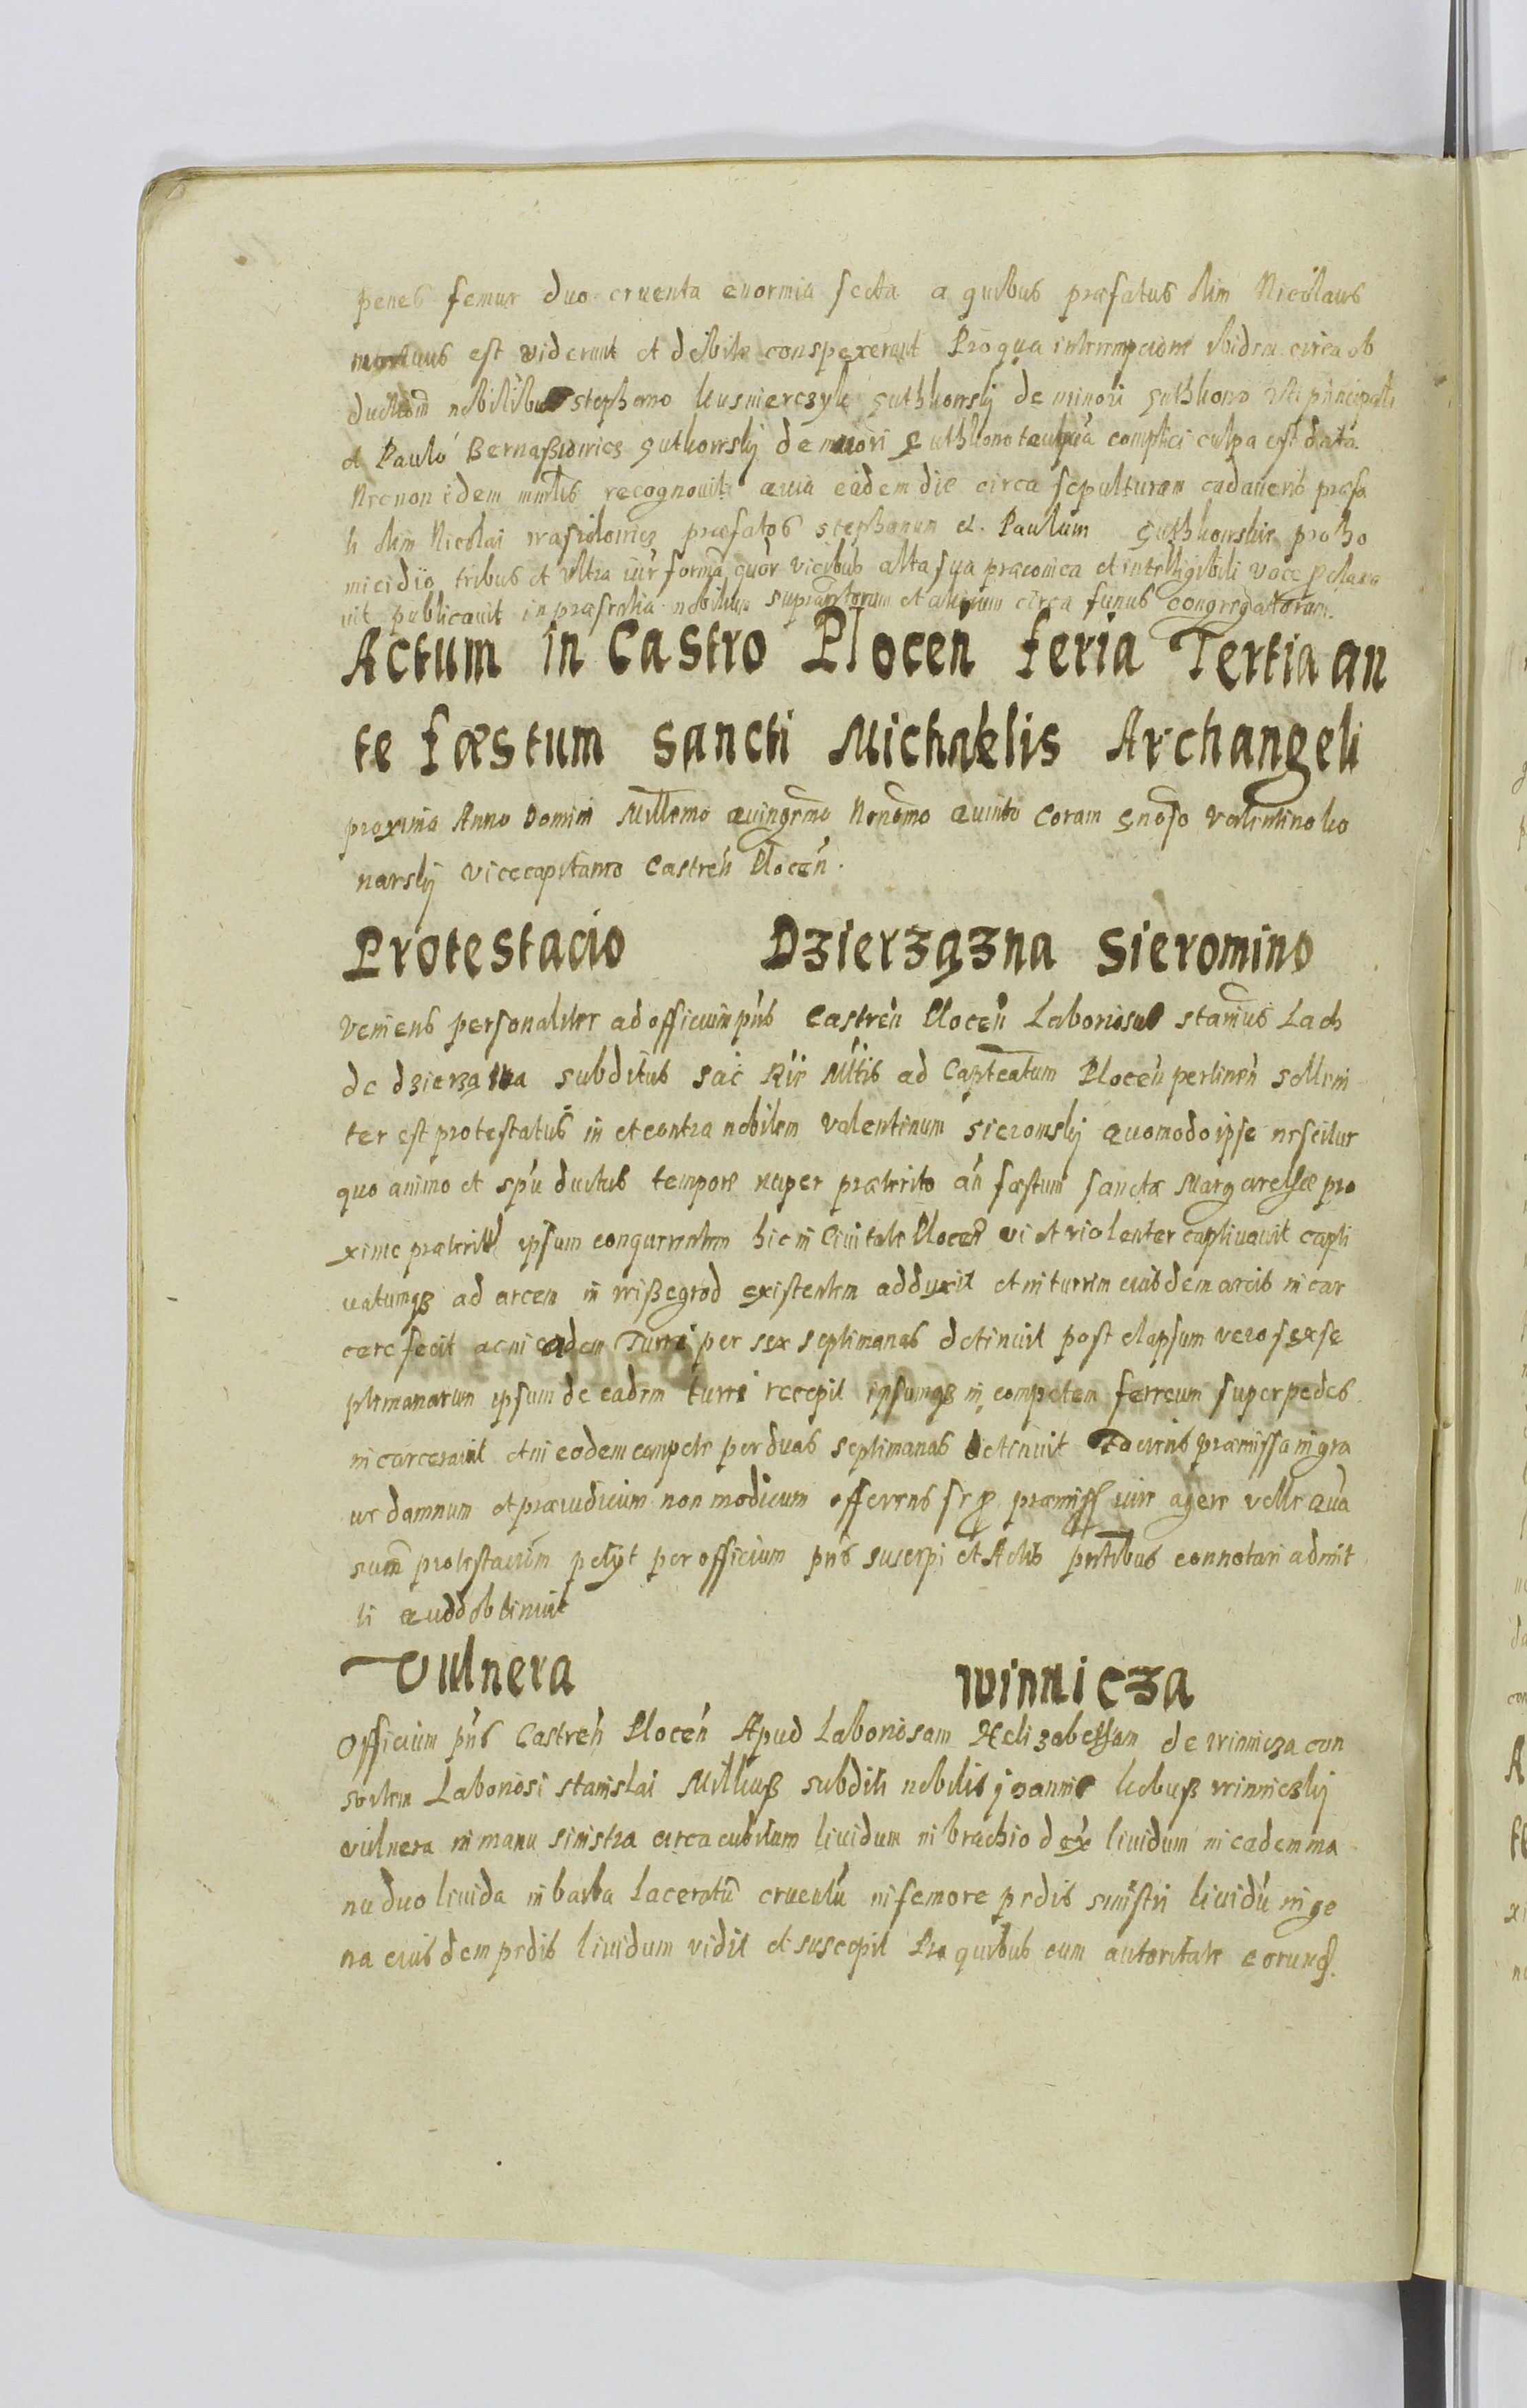 penes femur duo cruenta enormia secta a quibus præfatus olim Nicolaus
mortuus est viderunt et debite conspexerunt Pro qua interempcione ibidem circa ob
ductiom nobilibus Stephano Kusmierczyk Guthkowskÿ de minori Guthkowo uti principali
et Paulo Bernaßiowicz Gutkowskÿ de minori Guthkowo tanquã complici culpa est data
Necnon idem minrlis recognouit quia eadem die circa sepulturam cadaueris præfa
ti olim Nicolai præfatos Stephanum et Paulum Guthkowskie pro ho
micidio tribus et ultra iur forma quor vicibus alta sua præconica et intelligibili voce pclama
uit publicauit in præsentia nobilium suprascriptorum et aliorum circa funus congregatorum.
Actum in Castro Plocen feria Tertia an
te fæstum Sancti Michaelis Archangeli
proxima Anno Domini Millemo Quingemo Nonomo Quinto Coram Gnoso Valentino Ko
narskÿ Vicecapitanео Castren Plocen.
Protestacio Dzierzązna Sieromino
Veniens personaliter ad officium pns Castren Plocen Laboriosus Stanius Lach
de Dzierzązna subditus Sac Rie Mtis ad Capteatum Plocen pertinen sollem
ter est protestatus in et contra nobilem Valentinum Sieromskÿ Quomodo ipse nescitur
quo animo et spu ductus tempore nuper præterito an fæstum Sanctæ Margarethæ pro
xime præterito ipsum conquerentem hic in Ciuitate Plocen vi et violenter captiuauit capti
uatumqz ad arcem in Wißegrod existentem adduxit et in turrim eiusdem arcis incar
cere fecit ac in eadem Turri per sex septimanas detinuit post elapsum vero sex se
ptimanarum ipsum de eadem turri recepit ipsumqz in competem ferreum super pedes
incarcerauit et in eodem compete per duas septimanas detinuit Faciens præmissa in gra
ue damnum et præiudicium non modicum offerens se p præmiss iure agere velle Quã
suam protestaciom petÿt per officium pns suscipi et Actis pntibus connotari admit
ti Quod obtinuit
Vulnera Winnicza
Officium pns Castren Plocen Apud Laboriosam Helizabetham de Winnicza con
sortem Laboriosi Stanislai Milkuß subditi nobilis Joannis Kobuß Winniczkÿ
vulnera in manu sinistra circa cubitum liuidum in brachio dex liuidum in eadem ma
nu duo liuida in barba laceratũ cruentũ in femore pedis sinistri liuidũ in ge
na eiusdem pedis liuidum vidit et suscepit Pro quibus cum autoritate eorund